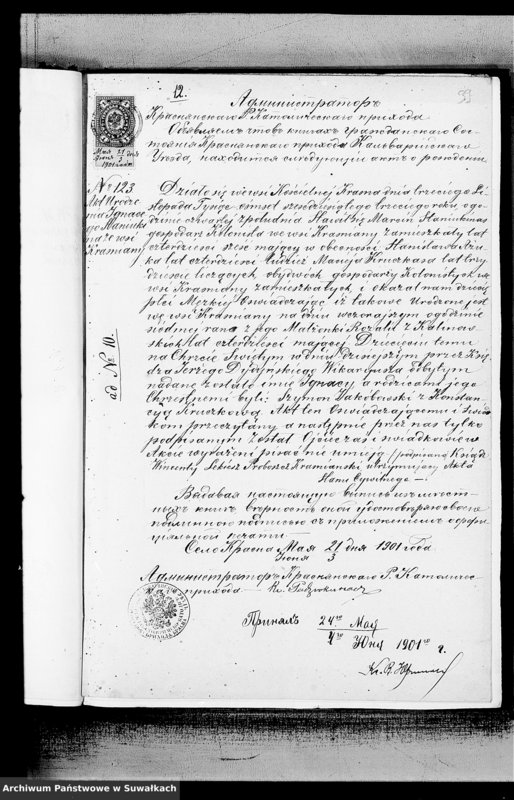 12.
33
Администраторъ
Краснянскаго Р. Католическаго прихода
Объявляемъ что въ книгахъ гражданскаго Сос-
тоянія Краснянскаго прихода Кальварійскаго
Уѣзда, находится слѣдующій актъ о рожденіи
Мая 21 дня
Іюня 3
1901 года
№ 123
Akt Urodze
nia Ignace
go Haniuki
na ze wsi
Krasniany
ad № 10.
Działo się we wsi Kościelnej Krasna dnia trzeciego Li-
stopada Tysiąc ośmset sześdziesiątego trzeciego roku, o go-
dzinie czwartej z południa Stawił się Marcin Haniukinas
gospodarz we wsi Krasniany zamieszkały lat
czterdzieści sześć mający w obecności Stanisława
lat czterdzieści tudzież Macieja Kruczkasa lat trzy-
dzieści liczących obydwóch gospodarzy Kolonistych we
wsi Krasniany zamieszkałych, i okazał nam dziecię
płci Męzkiej Oświadczając iż takowe Urodzone jest
we wsi Krasniany na dniu wczorajszym o godzinie
siódmej rano z jego Małżonki Rozalii z Kalinow-
skich lat czterdzieści mającej Dziecięciu temu
na Chrzcie Świętym w dniu dzisiejszym przez Księ-
dza Jerzego Wikaryusza odbytym
nadane zostało imie Ignacy, a rodzicami jego
Chrzestnemi byli: Szymon Jakobowski z Konstan-
cyą Kruczkową Akt ten Oświadczającemu i Świad-
kom przeczytany a następnie przez nas tylko
podpisanym został Ojciec zaś i świadkowie w
Akcie wyrażeni pisać nie umieją (podpisano) Ksiądz
Wincenty Proboszcz Krasnianski utrzymujący Akta
Stanu Cywilnego —
Выдавая настоящую выпись изъ мѣст-
ныхъ книгъ, вѣрность оной удостовѣряю своею
подлинною подписью съ приложеніемъ оффи-
ціальной печати.
Село Красна Мая 21 дня 1901 года
Іюня 3
Администраторъ Краснянскаго Р. Католичес-
каго прихода Кс.
Принялъ 24го Мая
Іюня 1901го г.
Archiwum Państwowe w Suwałkach